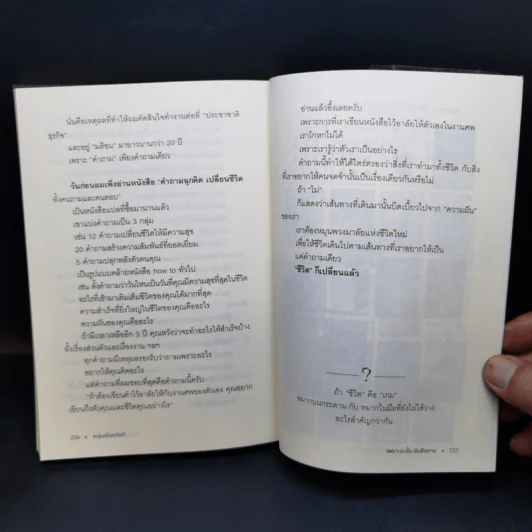 นั่นคือเหตุผลที่ทำให้ผมตัดสินใจทำงานต่อที่ "ประชาชาติ
ธุรกิจ"
และอยู่ "มติชน" มายาวนานกว่า 20 ปี
เพราะ "คำถาม" เพียงคำถามเดียว
วันก่อนผมเพิ่งอ่านหนังสือ "คำถามฉุกคิด เปลี่ยนชีวิต
ทั้งคนถามและคนตอบ"
เป็นหนังสือแปลที่ซื้อมานานแล้ว
เขาแบ่งคำถามเป็น 3 กลุ่ม
เช่น 12 คำถามเปลี่ยนชีวิตให้มีความสุข
20 คำถามสร้างความสัมพันธ์ที่ยอดเยี่ยม
5 คำถามปลุกพลังตัวตนคุณ
เป็นรูปแบบคล้ายหนังสือ how to ทั่วไป
เช่น ตั้งคำถามว่าวันไหนเป็นวันที่คุณมีความสุขที่สุดในชีวิต
อะไรที่เข้ามาเติมเต็มชีวิตของคุณได้มากที่สุด
ความสำเร็จที่ยิ่งใหญ่ในชีวิตของคุณคืออะไร
ความฝันของคุณคืออะไร
ถ้ามีเวลาเหลืออีก 3 ปี คุณหวังว่าจะทำอะไรให้สำเร็จบ้าง
ทั้งเรื่องส่วนตัวและเรื่องงาน ฯลฯ
ทุกคำถามมีเหตุผลรองรับว่าถามเพราะอะไร
อยากให้คุณคิดอะไร
แต่คำถามที่ผมชอบที่สุดคือคำถามนี้ครับ
"ถ้าต้องเขียนคำไว้อาลัยให้กับงานศพของตัวเอง คุณอยาก
เขียนถึงตัวคุณและชีวิตคุณอย่างไร"
236
อ่านแล้วอึ้งเลยครับ
เพราะการที่เราเขียนหนังสือไว้อาลัยให้ตัวเองในงานศพ
เราโกหกไม่ได้
เพราะเรารู้ว่าตัวเราเป็นอย่างไร
คำถามนี้ทำให้ได้ใคร่ตรองว่าสิ่งที่เราทำมาทั้งชีวิต กับสิ่ง
ที่เราอยากให้คนจดจำนั้นเป็นเรื่องเดียวกันหรือไม่
ถ้า "ไม่"
ก็แสดงว่าเส้นทางที่เดินมานั้นบิดเบี้ยวไปจาก "ความฝัน"
ของเรา
เราต้องหมุนพวงมาลัยแห่งชีวิตใหม่
เพื่อให้ชีวิตเดินไปตามเส้นทางที่เราอยากให้เป็น
แค่คำถามเดียว
"ชีวิต" ก็เปลี่ยนแล้ว
?
ถ้า "ชีวิต" คือ "เกม"
หมากบนกระดาน กับ หมากในมือที่ยังไม่ได้วาง
อะไรสำคัญกว่ากัน
237